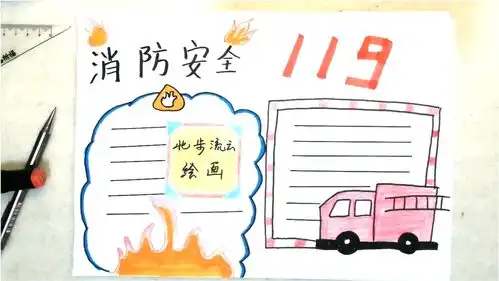 消防安全 119
步流云
绘画